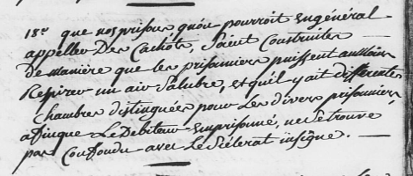 18.e que nos prisons qu'on pourroit en général
appeller Des Cachots, Soient Construites
de manière que les prisonniers puissent au moins
Respirer un air Salubre, et qu'il y ait differentes
Chambres distinguées pour Les divers prisonniers
afinque Le Debiteur Emprisonné, ne se trouve
pas Confondu avec Le Scélerat insigne.